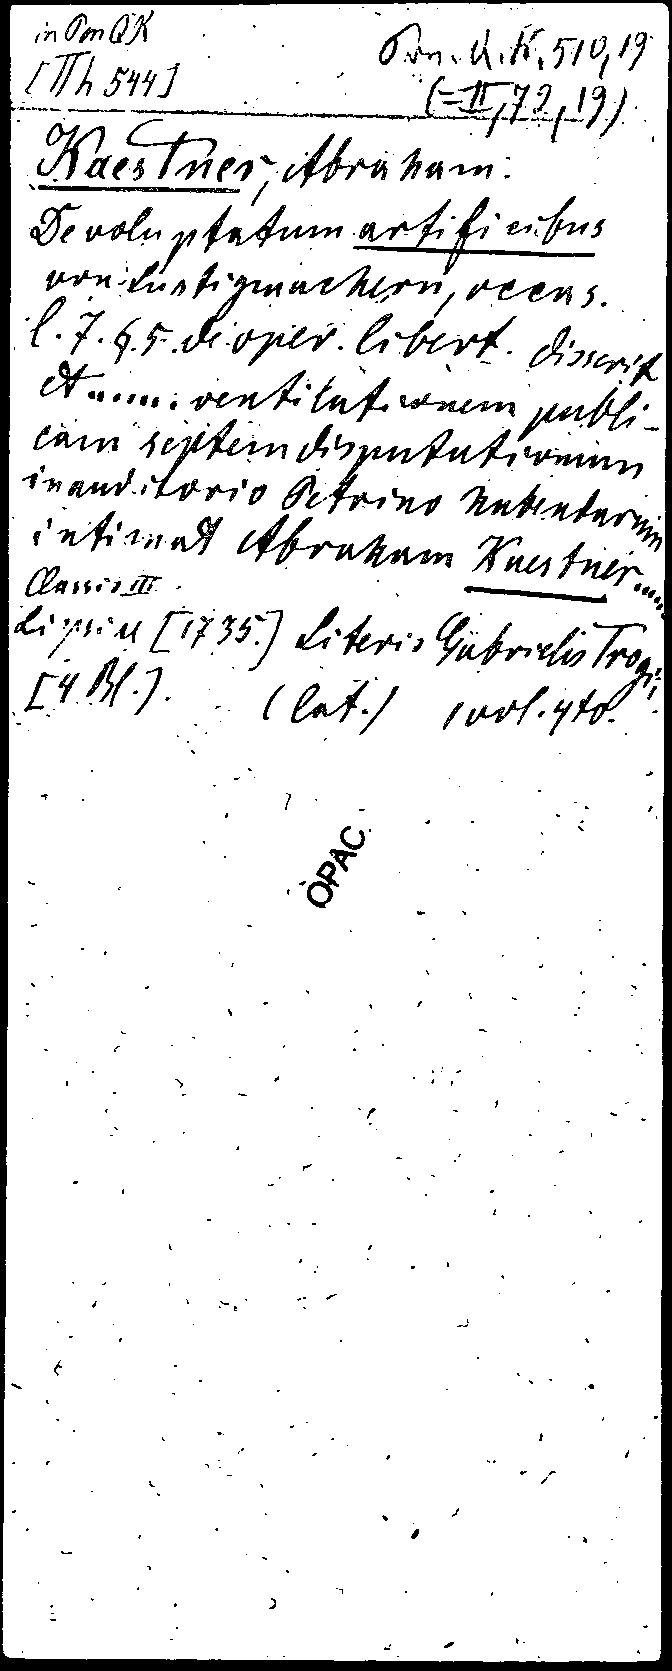 in Pon QK
[Th 544]
Pon. Q. K. 510,19
(=II,72,19)
Kaestner, Abraham:
De voluptatum artificibus
von Lustigmachern, occas.
l. 7. § 5. de oper. libert. disserit
et ..... ventilationem publi-
cam septem disputationum
in auditorio Petrino habendarum
intimat Abraham Kaestner.....
Classis III
Lipsiae [1735.] Literis Gabrielis Trogii,
[4 Bl.]. (lat.) 1 vol. 4to.
OPAC